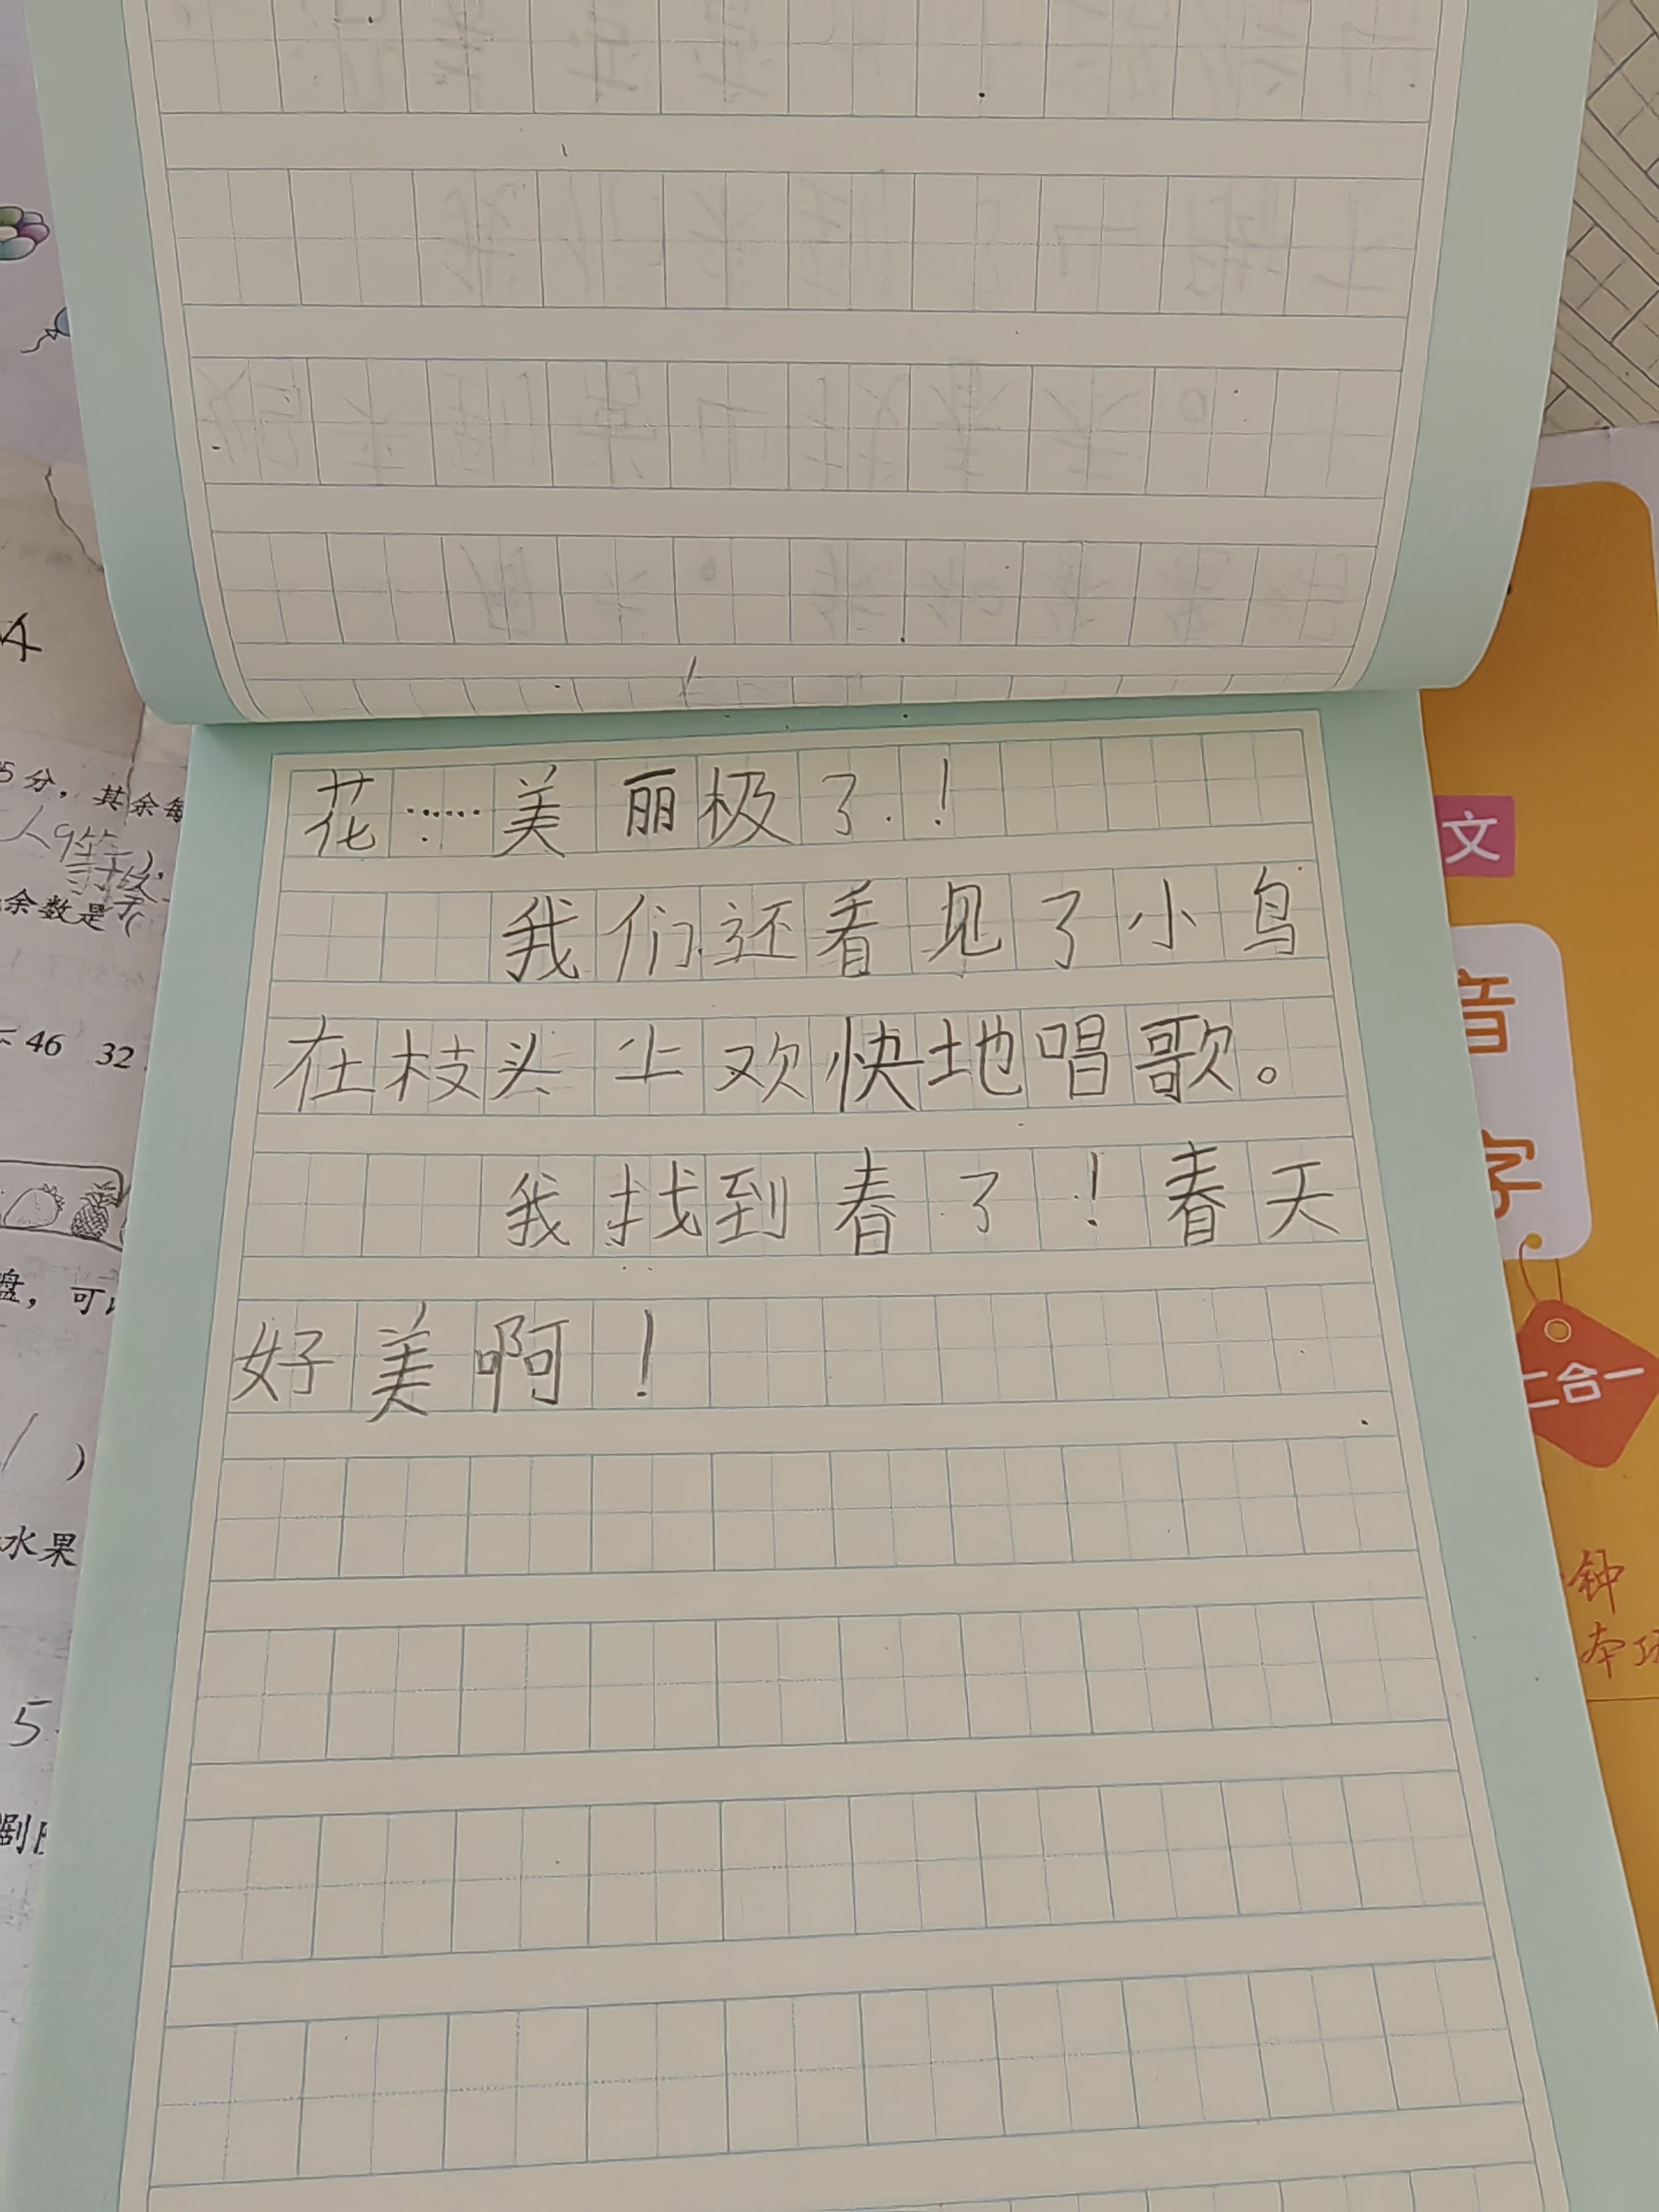 花……美丽极了！
我们还看见了小鸟
在枝头上欢快地唱歌。
我找到春了！春天
好美啊！
4
5分，其余每
余数是
46 32
盘，可以
)
水果
5
文
音
字
二合一
钟
本